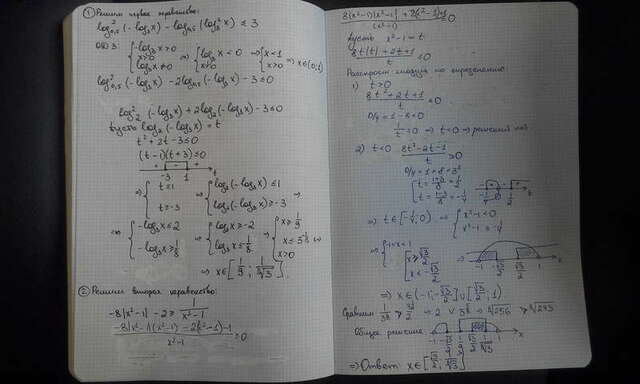 ① Решим первое неравенство:
log²₀,₅(-log₃x) - log₀,₅(log₃²x) ≤ 3
ОДЗ: { -log₃x>0 x>0 log₃x≠0 ⇒ { log₃x<0 x>0 ⇒ { x<1 x>0 ⇒ x∈(0;1)
log²₀,₅(-log₃x) - 2log₀,₅(-log₃x) - 3 ≤ 0
log₂²(-log₃x) + 2log₂(-log₃x) - 3 ≤ 0
Пусть log₂(-log₃x) = t
t² + 2t - 3 ≤ 0
(t-1)(t+3) ≤ 0
+ - +
-3 1 t
⇒ { t≤1 t≥-3 ⇒ { log₂(-log₃x) ≤ 1 log₂(-log₃x) ≥ -3 ⇒
⇒ { -log₃x ≤ 2 -log₃x ≥ 1/8 ⇒ { log₃x ≥ -2 log₃x ≤ -1/8 ⇒ { x ≥ 1/9 x>0
⇒ x∈[1/9; 1/⁸√3]
② Решим второе неравенство:
-8|x²-1| - 2 ≥ 1/(x²-1)
(-8|x²-1|(x²-1) - 2(x²-1) - 1)/(x²-1) ≥ 0
(8|x²-1|(x²-1) + 2(x²-1)+1)/(x²-1) ≤ 0
Пусть x²-1 = t
(8t|t| + 2t + 1)/t ≤ 0
Раскроем модуль по определению:
1) t>0
(8t² + 2t + 1)/t ≤ 0
D/4 = 1-8<0
1/t ≤ 0 ⇒ t<0 ⇒ решений нет
2) t<0 (8t²-2t-1)/t ≥ 0
D/4 = 1+8 = 3²
[ t = (1+3)/8 = 1/2 t = (1-3)/8 = -1/4
⇒ t∈[-1/4; 0) ⇒ { x²-1<0 x²-1 ≥ -1/4
⇒ { -1<x<1 [ x ≥ √3/2 x ≤ -√3/2
-1 -√3/2 √3/2 1 x
⇒ x∈(-1; -√3/2] ∪ [√3/2; 1)
Общее решение:
⇒ Ответ: x∈[√3/2; 1/⁸√3]